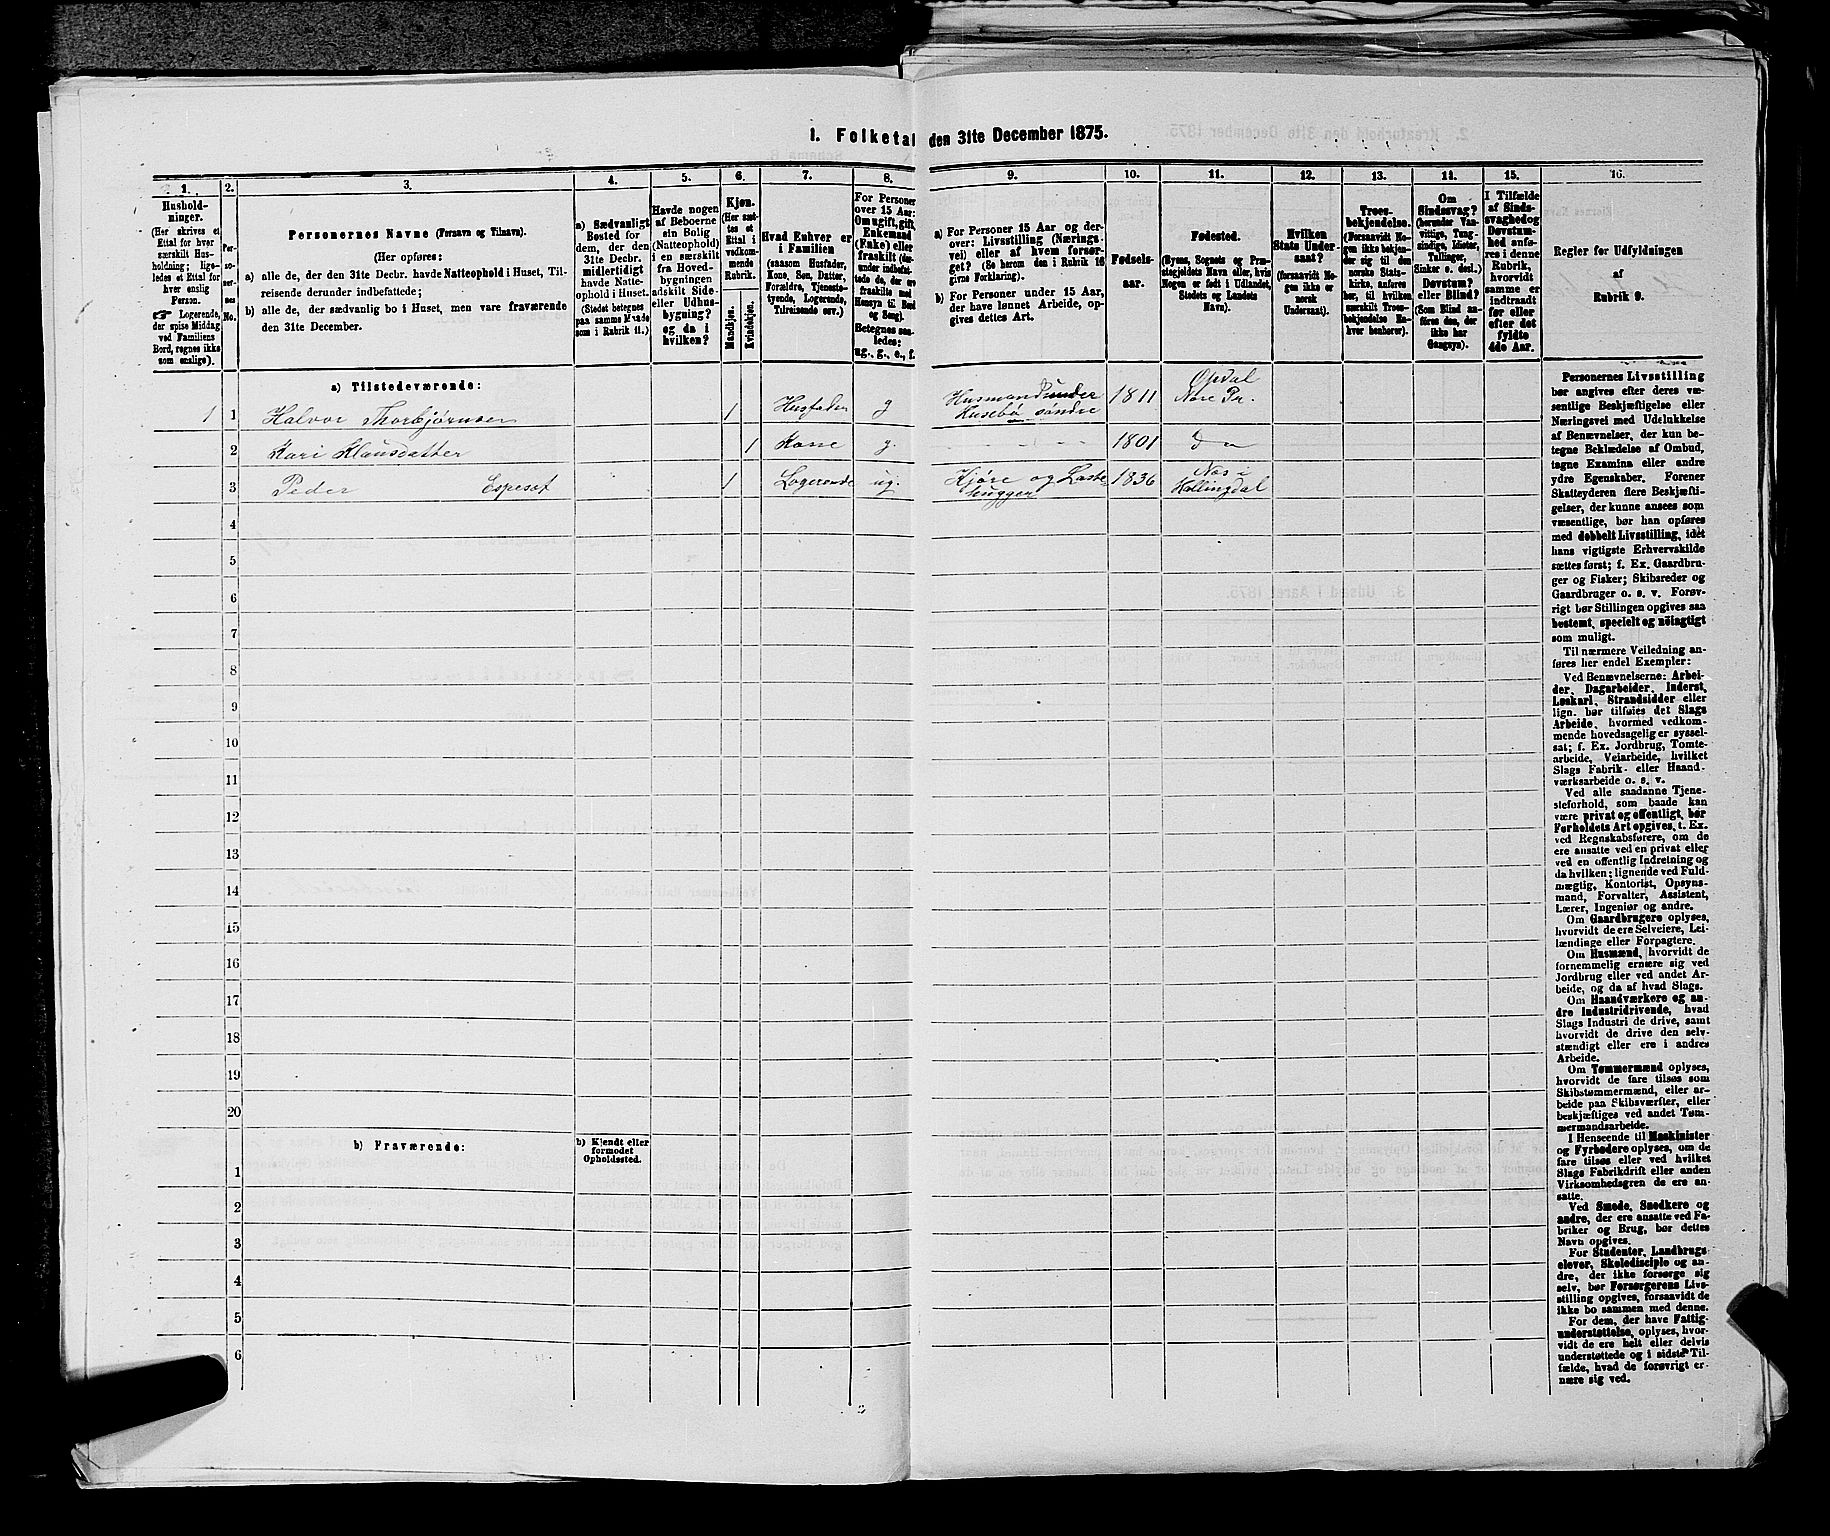 1. Folketal den 31te December 1875.
1.
Hushold-
ninger.
(Her skrives et
Ettal for hver
særskilt Hus-
holdning; lige-
ledes et Ettal for
hver enslig
Person.
☞ Logerende,
der spise Middag
ved Familiens
Bord, regnes ikke
som enslige).
2.
Per-
so-
ner-
nes
No.
3.
Personernes Navne (Fornavn og Tilnavn).
(Her opføres:
a) alle de, der den 31te Decbr. havde Natteophold i Huset, Til-
reisende derunder indbefattede;
b) alle de, der sædvanlig bo i Huset, men vare fraværende
den 31te December.
4.
a) Sædvanligt
Bosted for
dem, der den
31te Decbr.
midlertidigt
havde Natte-
ophold i Huset.
(Stedet betegnes
paa samme Maade
som i Rubrik 11.)
5.
Havde nogen
af Beboerne
sin Bolig
(Natteophold)
i en særskilt
fra Hoved-
bygningen
adskilt Side-
eller Udhus-
bygning?
og da i
hvilken?
6.
Kjøn.
(Her sæt-
tes et
Ettal i
vedkom-
mende
Rubrik.
Mandkjøn.
Kvindekjøn.
7.
Hvad Enhver er
i Familien
(saasom Husfader,
Kone, Søn, Datter,
Forældre, Tjeneste-
tyende, Logerende,
Tilreisende osv.)
8.
For Personer
over 15 Aar:
Om ugift, gift,
Enkemand
(Enke) eller
fraskilt (der-
under indbefat-
tede de, der ere
fraskilte med
Hensyn til Bord
og Seng).
Betegnes saa-
ledes:
ug., g., e., f.
9.
a) For Personer 15 Aar og der-
over: Livsstilling (Nærings-
vei) eller af hvem forsør-
get? (Se herom den i Rubrik 16
givne Forklaring).
b) For Personer under 15 Aar,
der have lønnet Arbeide, op-
gives dettes Art.
10.
Fødsels-
aar.
11.
Fødested.
(Byens, Sognets og Præ-
stegjeldets Navn eller, hvis
Nogen er født i Udlandet,
Stedets og Landets
Navn).
12.
Hvilken
Stats Under-
saat?
(forsaavidt No-
gen ikke er
norsk
Undersaat).
13.
Troes-
bekjendelse.
(Forsaavidt No-
gen ikke bekjen-
der sig til den
norske Stats-
kirke, anføres
her, til hvilken
særskilt Troes-
bekjendelse En-
hver henhører).
14.
Om
Sindssvag?
(herunder Van-
vittige, Tung-
sindige, Idioter,
Tullinger,
Sinker o. desl.)
Døvstum?
eller Blind?
(Som Blind an-
føres den, der
ikke har
Gangsyn).
15.
I Tilfælde
af Sinds-
svaghed og
Døvstum-
hed anfø-
res i denne
Rubrik,
hvorvidt
samme er
indtraadt
før eller
efter det
fyldte
4de Aar.
16.
Regler for Udfyldningen
af
Rubrik 9.
a) Tilstedeværende:
1 1 Halvor Thorbjørnsen 1 Husfader g Husmand under Husebø søndre 1811 Opdal Nore Pr.
2 Kari Klausdatter 1 Kone g. - - - - 1801 do
3 Peder Espeset 1 Logerende ug. Kjøre og Laste-hugger 1836 Næs i Hallingdal
4
5
6
7
8
9
10
11
12
13
14
15
16
17
18
19
20
b) Fraværende:
b) Kjendt eller
formodet
Opholdssted.
1
2
3
4
5
6
Personernes Livsstilling
bør angives efter deres væ-
sentlige Beskjæftigelse eller
Næringsvei med Udelukkelse
af Benævnelser, der kun be-
tegne Beklædelse af Ombud,
tagne Examina eller andre
ydre Egenskaber. Forener
Skatteyderen flere Beskjæfti-
gelser, der kunne ansees som
væsentlige, bør han opføres
med dobbelt Livsstilling, idet
hans vigtigste Erhvervskilde
sættes først; f. Ex. Gaardbru-
ger og Fisker; Skibsreder og
Gaardbruger o. s. v. Forøv-
rigt bør Stillingen opgives saa
bestemt, specielt og nöiagtigt
som muligt.
Til nærmere Veiledning an-
føres her endel Exempler:
Ved Benævnelserne: Arbei-
der, Dagarbeider, Inderst,
Løskarl, Strandsidder eller
lign. bør tilføies det Slags
Arbeide, hvormed vedkom-
mende hovedsagelig er syssel-
sat; f. Ex. Jordbrug, Tomte-
arbeide, Veiarbeide, hvilket
Slags Fabrik- eller Haand-
værksarbeide o. s. v.
Ved alle saadanne Tjene-
steforhold, som baade kan
være privat og offentligt, bør
Forholdets Art opgives, t. Ex.
ved Regnskabsførere, om de
ere ansatte ved en privat eller
ved en offentlig Indretning og
da hvilken; lignende ved Fuld-
mægtig, Kontorist, Opsyns-
mand, Forvalter, Assistent,
Lærer, Ingeniør og andre.
Om Gaardbrugere oplyses,
hvorvidt de ere Selveiere, Lei-
lændinge eller Forpagtere.
Om Husmænd, hvorvidt de
fornemmelig ernære sig ved
Jordbrug eller ved andet Ar-
beide, og da af hvad Slags.
Om Haandværkere og an-
dre Industridrivende, hvad
Slags Industri de drive, samt
hvorvidt de drive den selv-
stændigt eller ere i andres
Arbeide.
Om Tømmermænd oplyses,
hvorvidt de fare tilsøs som
Skibstømmermænd, eller ar-
beide paa Skibsværfter, eller
beskjæftiges ved andet Tøm-
mermandsarbeide.
I Henseende til Maskinister
og Fyrbødere oplyses, om de
fare tilsøs eller ved hvilket
Slags Fabrikdrift eller anden
Virksomhedsgren de ere an-
satte.
Ved Smede, Snedkere og
andre, der ere ansatte ved Fa-
briker og Brug, bør dettes
Navn opgives.
For Studenter, Landbrugs-
elever, Skoledisciple og an-
dre, der ikke forsørge sig
selv, bør Forsørgerens Livs-
stilling opgives, forsaavidt de
ikke bo sammen med denne.
For dem, der have Fattig-
understøttelse, oplyses, hvor-
vidt de ere helt eller delvis
understøttede og i sidste Til-
fælde, hvad de forøvrigt er-
nære sig ved.